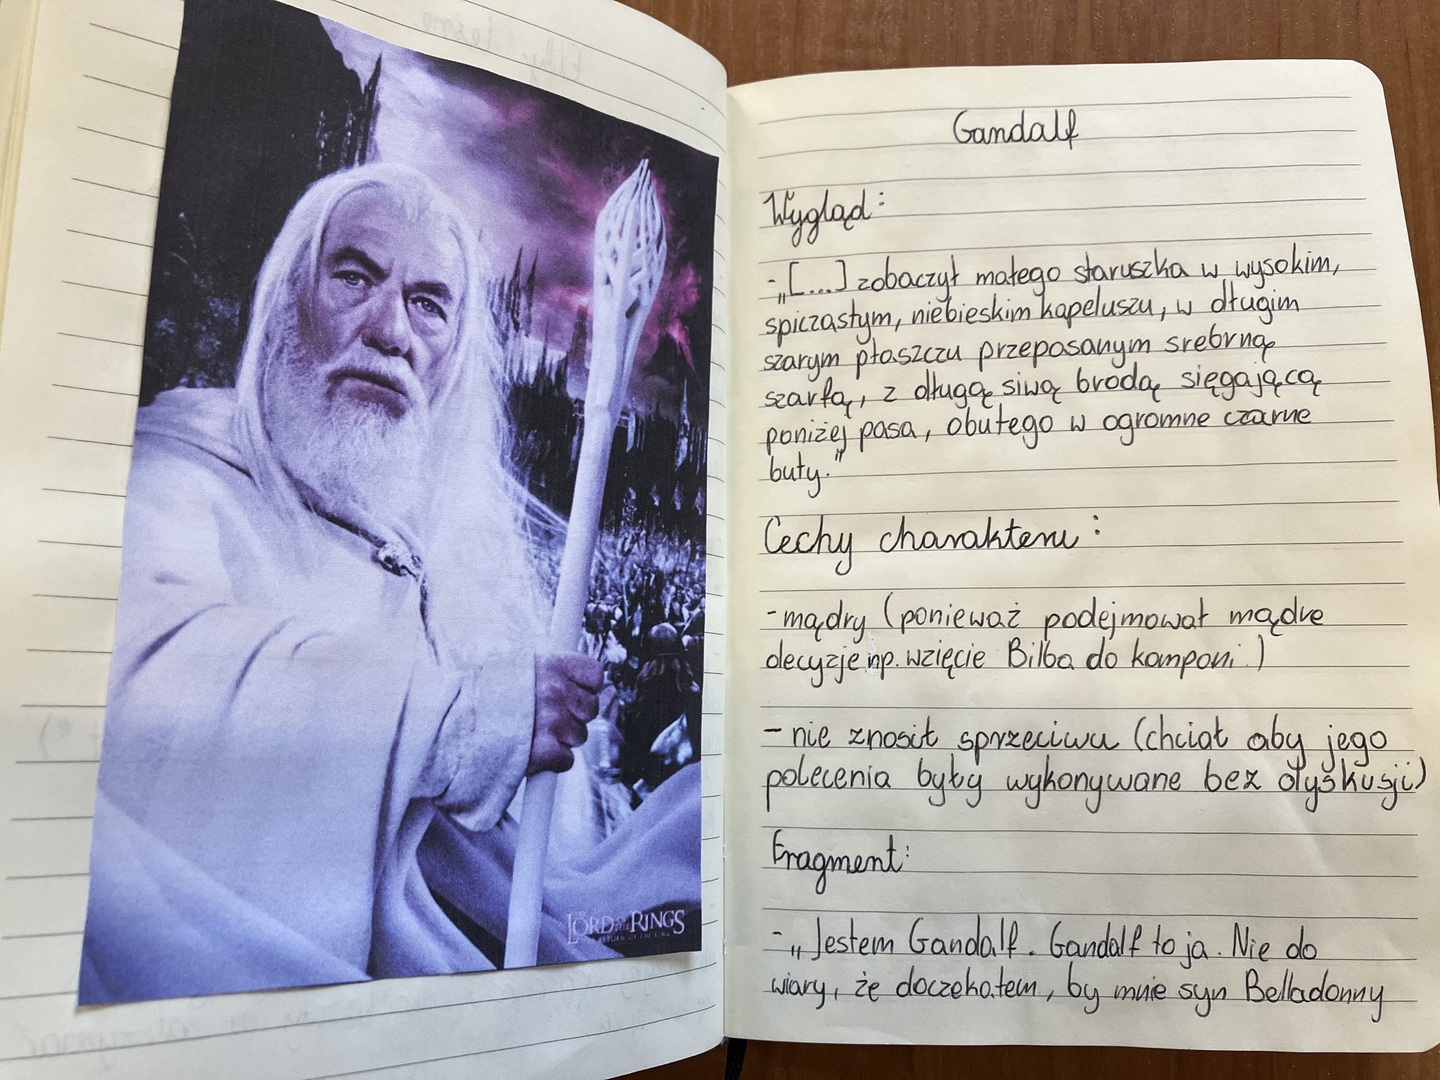 THE LORD OF THE RINGS
THE RETURN OF THE KING
Gandalf
Wygląd:
-„[...] zobaczył małego staruszka w wysokim,
spiczastym, niebieskim kapeluszu, w długim
szarym płaszczu przepasanym srebrną
szarfą, z długą siwą brodą sięgającą
poniżej pasa, obutego w ogromne czarne
buty."
Cechy charakteru:
-mądry (ponieważ podejmował mądre
decyzje np. wzięcie Bilba do kompani.)
- nie znosił sprzeciwu (chciał aby jego
polecenia były wykonywane bez dyskusji)
Fragment:
-„Jestem Gandalf. Gandalf to ja. Nie do
wiary, że doczekałem, by mnie syn Belladonny